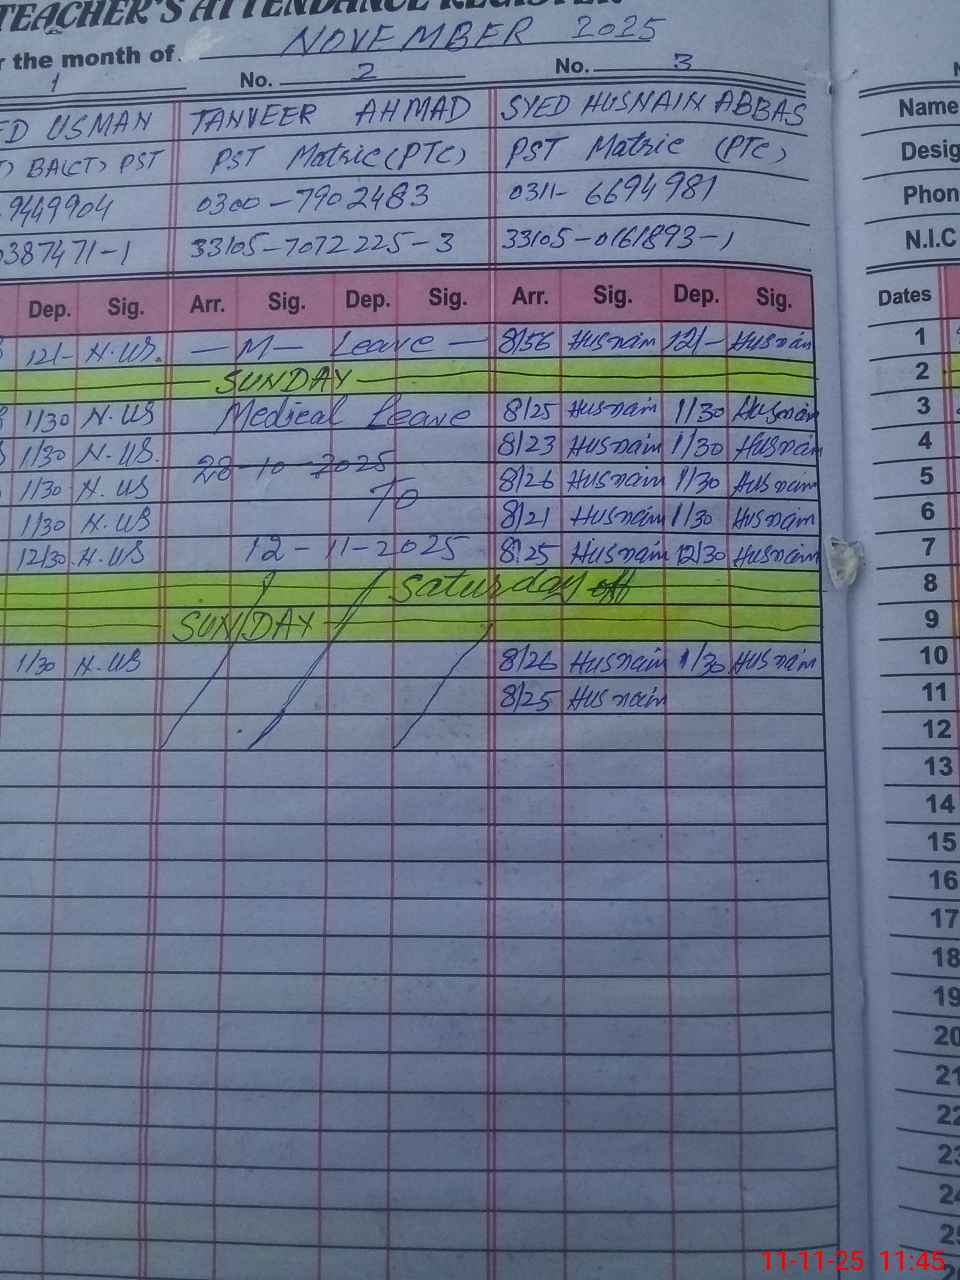 TEACHER'S ATTENDANCE REGISTER
r the month of. NOVEMBER 2025
1 No. 2 No. 3
ED USMAN TANVEER AHMAD SYED HUSNAIN ABBAS Name
BA(CT) PST PST Matric (PTC) PST Matric (PTC) Desig
9449904 0300-7902483 0311-6694981 Phon
0387471-1 33105-7072225-3 33105-0161893-1 N.I.C
Dep. Sig. Arr. Sig. Dep. Sig. Arr. Sig. Dep. Sig. Dates
12/- H.US. -M- Leave - 8/56 Husnain 12/- Husnain 1
SUNDAY 2
1/30 H.US Medical Leave 8/25 Husnain 1/30 Husnain 3
1/30 H.US. 28-10-2025 8/23 Husnain 1/30 Husnain 4
1/30 H.US To 8/26 Husnain 1/30 Husnain 5
1/30 H.US 8/21 Husnain 1/30 Husnain 6
12/30 H.US 12-11-2025 8/25 Husnain 12/30 Husnain 7
Saturday off 8
SUNDAY 9
1/30 H.US 8/26 Husnain 1/30 Husnain 10
8/25 Husnain 11
12
13
14
15
16
17
18
19
20
21
22
23
24
25
11-11-25 11:45